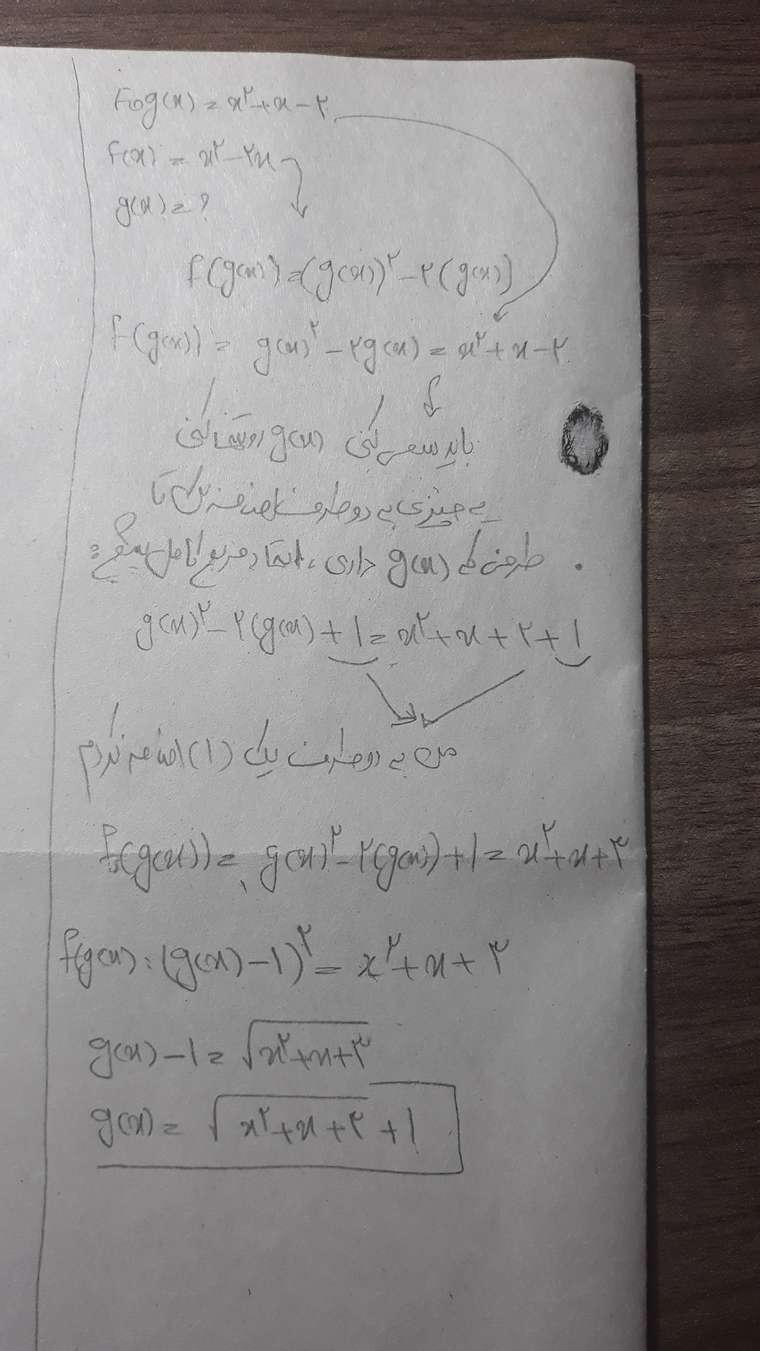 Fog(x) = x²+x-۲
f(x) = x²-۲x
g(x) = ?
f(g(x)) = (g(x))²-۲(g(x))
f(g(x)) = g(x)²-۲g(x) = x²+x-۲
باید سعی کنی g(x) رو تنها کنی
یه چیزی به دو طرف اضافه کن تا
طرفی که g(x) داری، اتحاد مربع کامل بشه
g(x)²-۲(g(x)+1 = x²+x+۲+1
من به دو طرف یک (1) اضافه کردم
f(g(x)) = g(x)²-۲(g(x))+1 = x²+x+۳
f(g(x): (g(x)-1)² = x²+x+۳
g(x)-1 = √x²+x+۳
g(x) = √x²+x+۳ +1